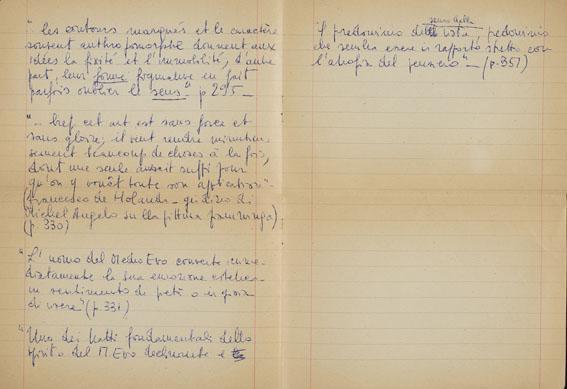 " les contours marqués et le caractère
souvent anthropomorphe donnent aux
idées la fixité et l'immobilité, d'autre
part, leur forme figurative en fait
parfois oublier le sens" p 295 —
"... bref cet art est sans force et
sans gloire; il veut rendre minutieu-
sement beaucoup de choses à la fois,
dont une seule aurait suffi pour
qu'on y vouât toute son application"
(Francesco de Holanda - giudizio di
Michel Angelo sulla pittura fiamminga)
(p. 330)
"L'uomo del Medio Evo converte imme-
diatamente la sua emozione estetica
in sentimento di pietà o in gioia
di vivere" (p. 331)
"Uno dei tratti fondamentali dello
spirito del M. Evo declinante è
senso della
il predominio della vista, predominio
che sembra essere in rapporto stretto con
l'atrofia del pensiero" — (p. 357)